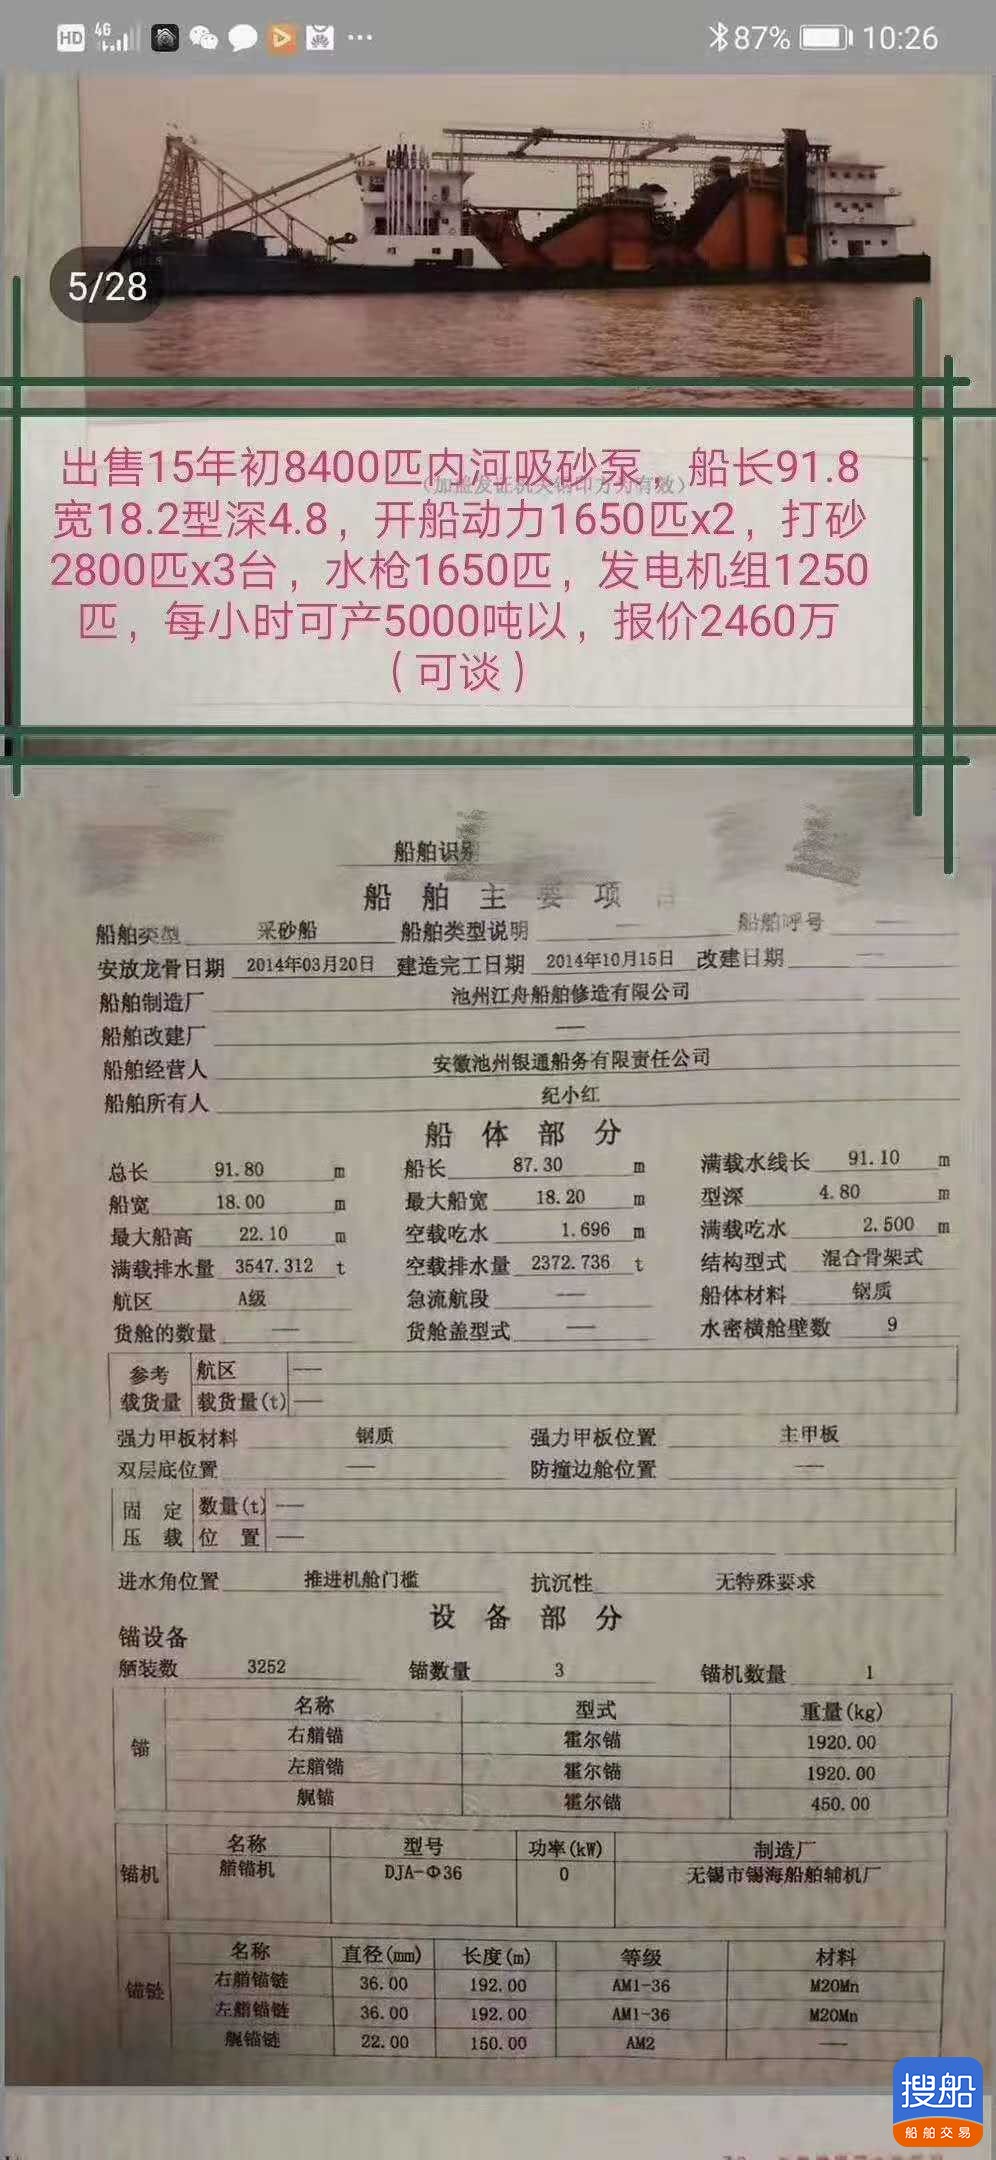 HD 4G 87% 10:26
5/28
(加盖发证机关钢印方为有效)
出售15年初8400匹内河吸砂泵，船长91.8
宽18.2型深4.8，开船动力1650匹x2，打砂
2800匹x3台，水枪1650匹，发电机组1250
匹，每小时可产5000吨以，报价2460万
（可谈）
船舶识别
船 舶 主 要 项
船舶类型 采砂船 船舶类型说明 — 船舶呼号 —
安放龙骨日期 2014年03月20日 建造完工日期 2014年10月15日 改建日期 —
船舶制造厂 池州江舟船舶修造有限公司
船舶改建厂 —
船舶经营人 安徽池州银通船务有限责任公司
船舶所有人 纪小红
船 体 部 分
总长 91.80 m 船长 87.30 m 满载水线长 91.10 m
船宽 18.00 m 最大船宽 18.20 m 型深 4.80 m
最大船高 22.10 m 空载吃水 1.696 m 满载吃水 2.500 m
满载排水量 3547.312 t 空载排水量 2372.736 t 结构型式 混合骨架式
航区 A级 急流航段 — 船体材料 钢质
货舱的数量 — 货舱盖型式 — 水密横舱壁数 9
参考 航区 —
载货量 载货量(t) —
强力甲板材料 钢质 强力甲板位置 主甲板
双层底位置 — 防撞边舱位置 —
固 定 数量(t) —
压 载 位 置 —
进水角位置 推进机舱门槛 抗沉性 无特殊要求
设 备 部 分
锚设备
舾装数 3252 锚数量 3 锚机数量 1
名称 型式 重量(kg)
右艏锚 霍尔锚 1920.00
锚
左艏锚 霍尔锚 1920.00
艉锚 霍尔锚 450.00
名称 型号 功率(kW) 制造厂
锚机 艏锚机 DJA-Φ36 0 无锡市锡海船舶辅机厂
名称 直径(mm) 长度(m) 等级 材料
锚链 右艏锚链 36.00 192.00 AM1-36 M20Mn
左艏锚链 36.00 192.00 AM1-36 M20Mn
艉锚链 22.00 150.00 AM2 —
搜船
船舶交易